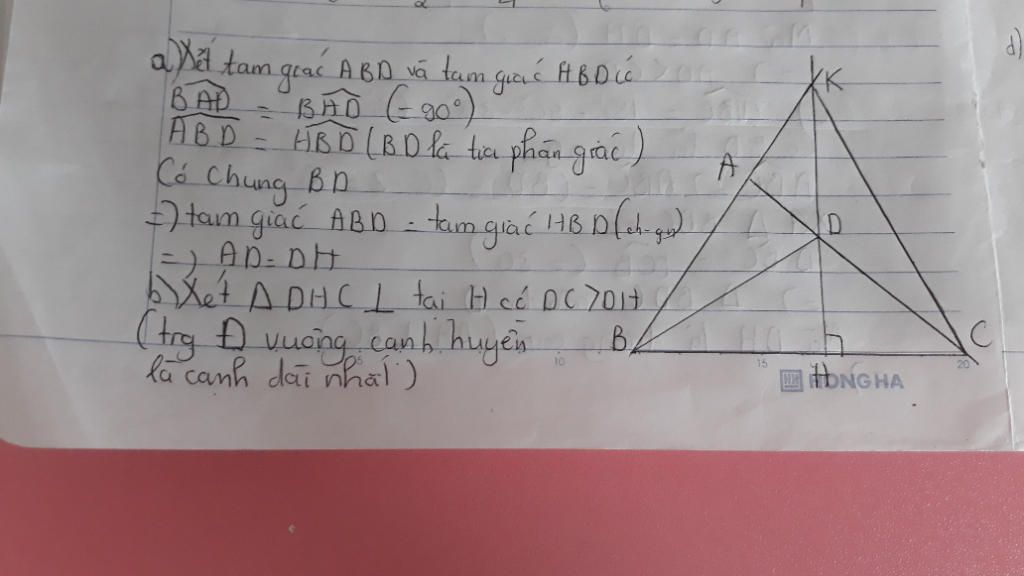 d)
a) Xét tam giác ABD và tam giác HBD có
BAD = BAD (= 90°)
ABD = HBD (BD là tia phân giác)
Có chung BD
=) tam giác ABD = tam giác HBD (ch-gn)
=) AD = DH
b) Xét Δ DHC ⊥ tại H có DC > DH
(trg Δ vuông cạnh huyền
là cạnh dài nhất)
K
A
D
B
C
H
10
15
20
HONG HA